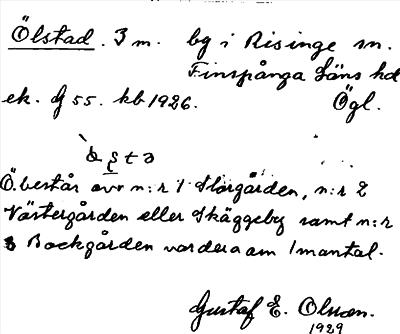 Ölstad. 3 m. by i Risinge sn.
Finspånga Läns hd
ek. G 55. kb 1926. Ögl.
Ö. består av n:r 1 Storgården, n:r 2
Västergården eller Skäggeby samt n:r
3 Bockgården vardera om 1 mantal.
Gustaf E. Olsson.
1929